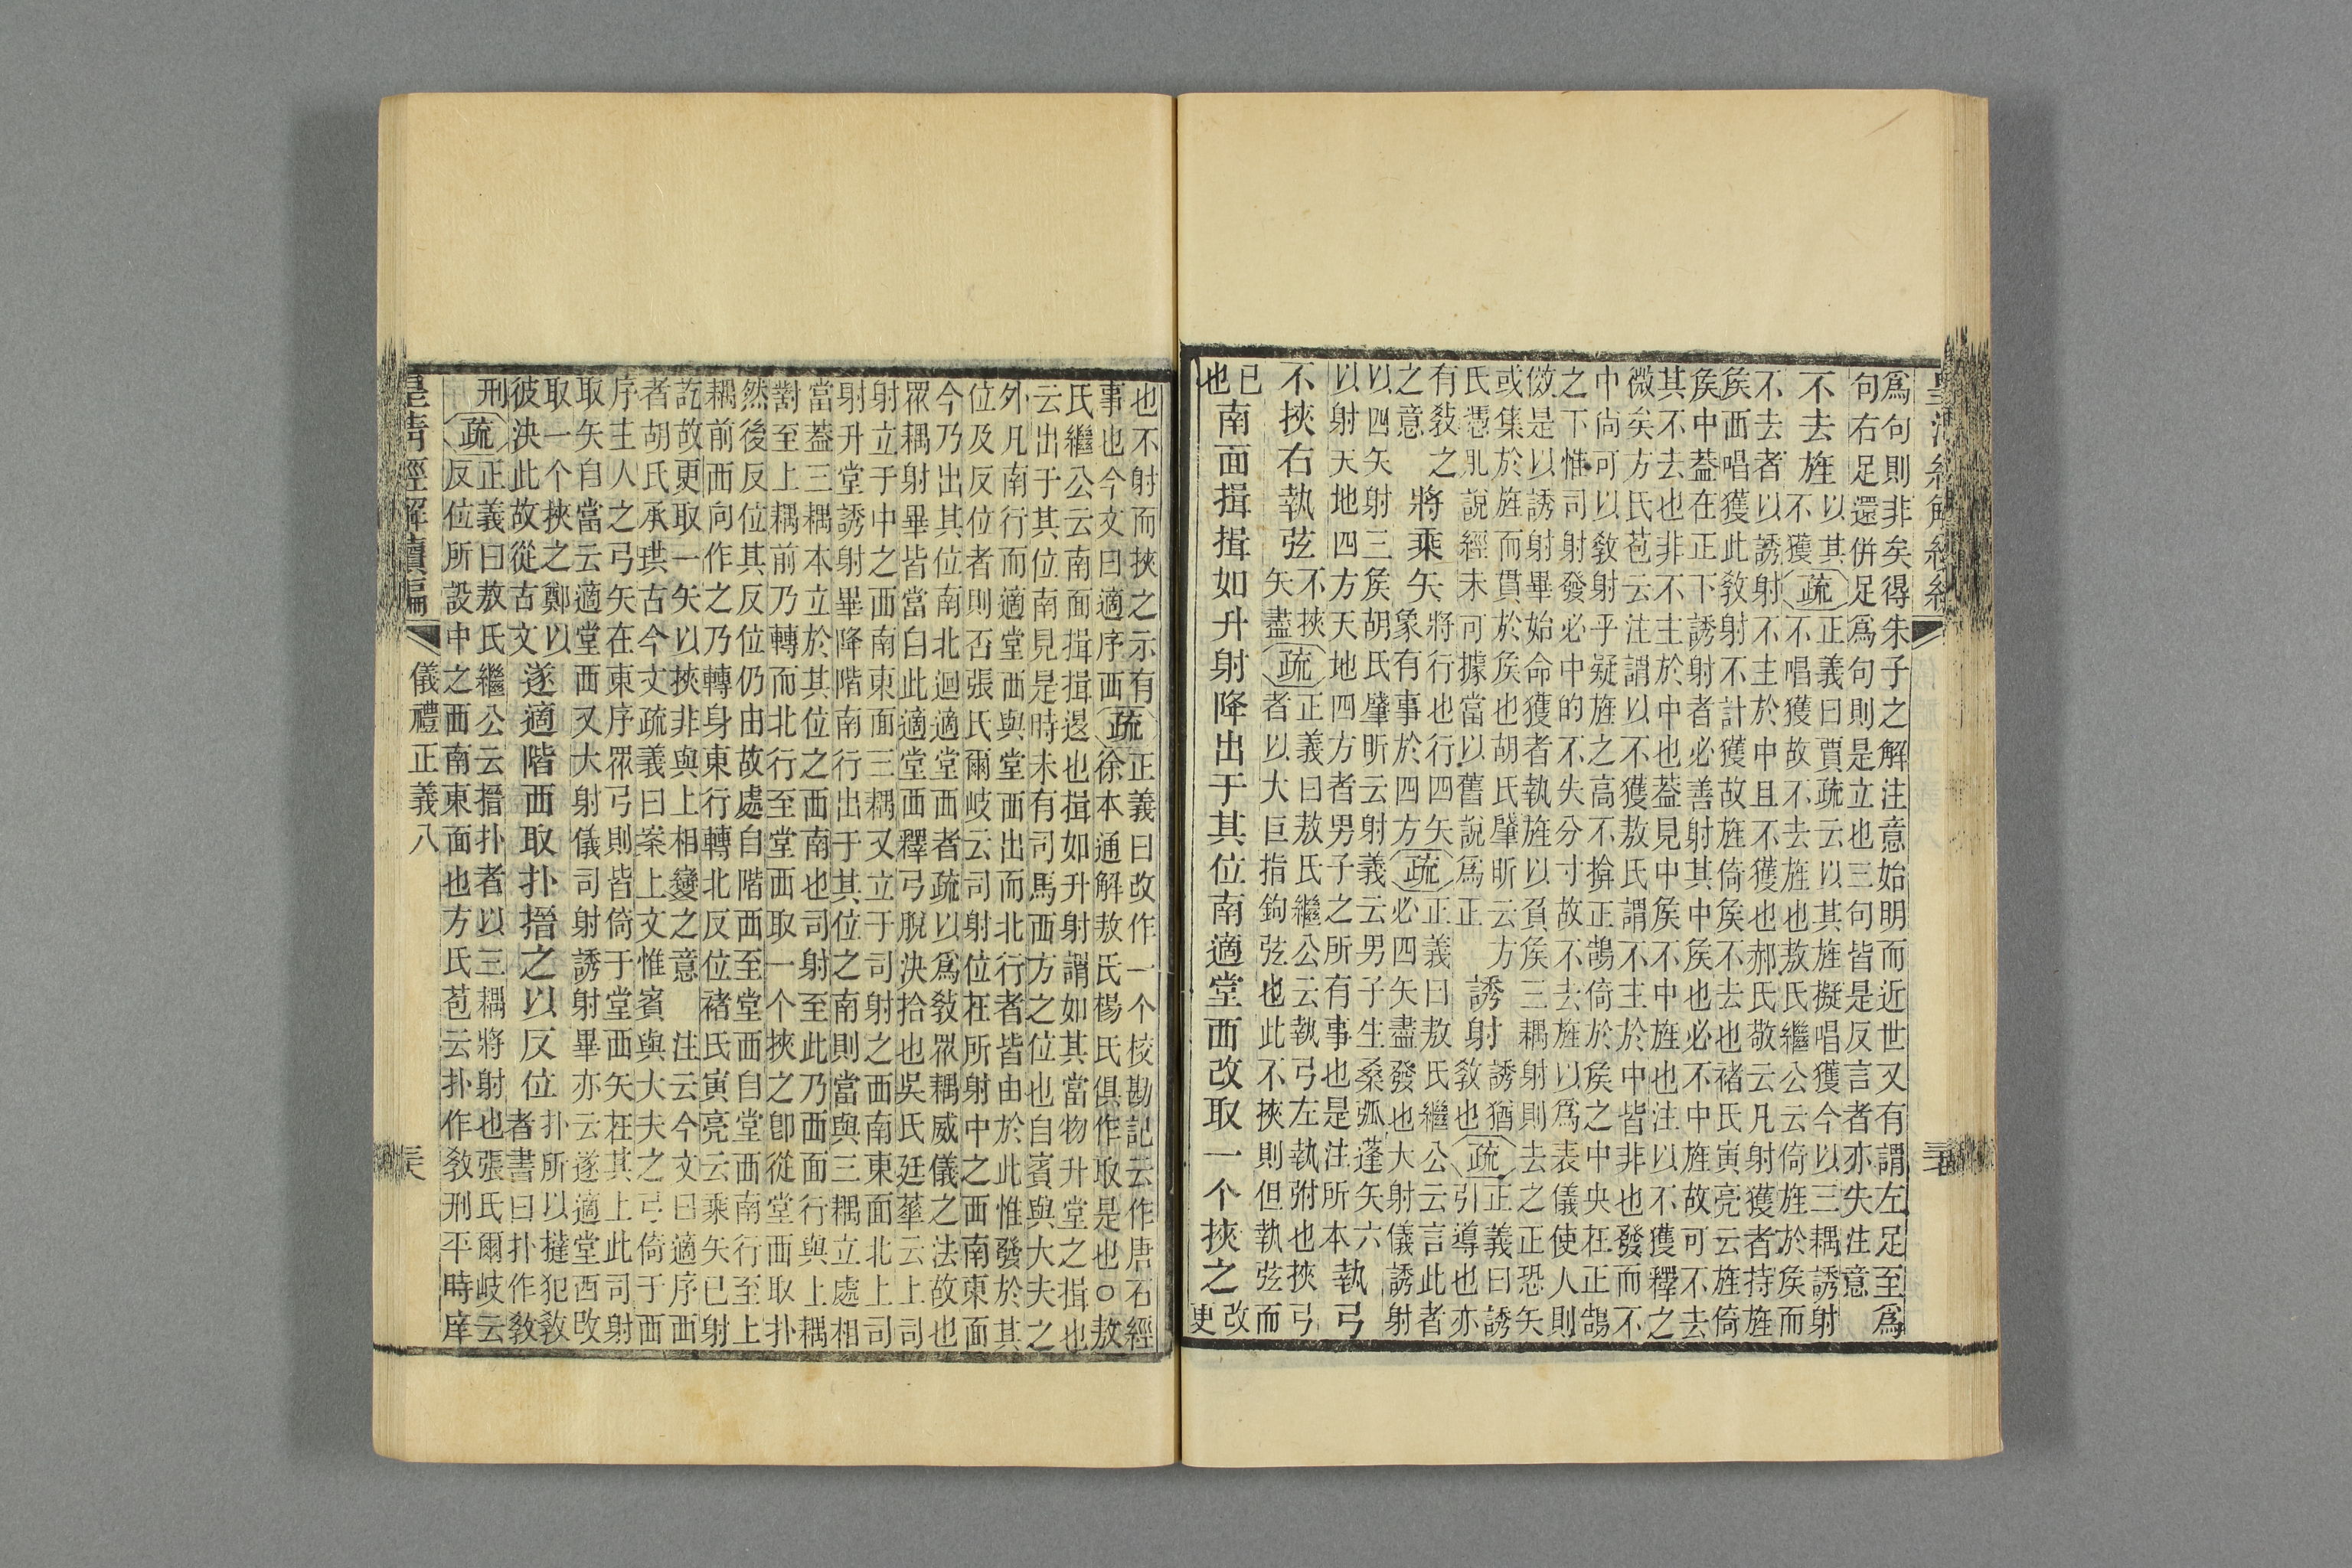 爲句則非矣得朱子之解注意始明而近世又有謂左足至爲
句右足還併足爲句則是立也三句皆是反言者亦失注意
不去旌
以其
不獲
疏
正義曰賈疏云以其旌擬唱獲今以三耦誘射
不唱獲故不去旌也敖氏繼公云倚旌於矦而
不去者以誘射不主於中且不獲也郝氏敬云凡射獲者持旌
矦西唱獲此敎射不計獲故旌倚矦不去也褚氏寅亮云旌倚
矦中葢在正下誘射者必善射其中矦也必不中旌故可不去
其不去也非不主於中也葢見中矦不中旌也注以不獲釋之
微矣方氏苞云注謂以不獲敖氏謂不主於中皆非也發而不
中尙可以敎射乎疑旌之高不揜正鵠倚於矦之中央在正鵠
之下惟司射發必中的不失分寸故不去旌以爲表儀使人則
傚是以誘射畢始命獲者執旌以負矦三耦射則去之正恐矢
或集於旌而貫於矦也胡氏肈昕云方
氏憑肊說經未可據當以舊說爲正
誘射
誘猶
敎也
疏
正義曰誘
引導也亦
有敎之
之意
將乘矢
將行也行四矢
象有事於四方
疏
正義曰敖氏繼公云言此者
必四矢盡發也大射儀誘射
以四矢射三矦胡氏肈昕云射義云男子生桑弧蓬矢六
以射天地四方天地四方者男子之所有事也是注所本
執弓
不挾右執弦
不挾
矢盡
疏
正義曰敖氏繼公云執弓左執弣也挾弓
者以大巨指鉤弦也此不挾則但執弦而
已
也
南面揖揖如升射降出于其位南適堂西改取一个挾之
改
更
也不射而挾之示有
事也今文曰適序西
疏
正義曰改作一个校勘記云作唐石經
徐本通解敖氏楊氏俱作取是也○敖
氏繼公云南面揖揖退也揖如升射謂如其當物升堂之揖也
云出于其位南見是時未有司馬西方之位也自賓與大夫之
外凡南行而適堂西與堂西出而北行者皆由於此惟發於其
位及反位者則否張氏爾岐云司射位在所射中之西南東面
今乃出其位南北迴適堂西者疏以爲敎眾耦威儀之法故也
眾耦射畢皆當自此適堂西釋弓脫決拾也吳氏廷華云上司
射立于中之西南東面三耦又立于司射之西南東面北上司
射升堂誘射畢降階南行出于其位之南則當與三耦立處相
當葢三耦本立於其位之西南也司射至此乃西面行與上耦
對至上耦前乃轉而北行至堂西取一个挾之卽從堂西取扑
然後反位其反位仍由故處自階西至堂西自堂西南行至上
耦前西向作之乃轉身東行轉北反位褚氏寅亮云乘矢已射
訖故更取一矢以挾非與上相變之意　注云今文曰適序西
者胡氏承珙古今文疏義曰案上文惟賓與大夫之弓倚于西
序主人之弓矢在東序眾弓則皆倚于堂西矢在其上此司射
取矢自當云適堂西又大射儀司射誘射畢亦云遂適堂西改
取一个挾之鄭以
彼決此故從古文
遂適階西取扑搢之以反位
扑所以撻犯敎
者書曰扑作敎
刑
疏
正義曰敖氏繼公云搢扑者以三耦將射也張氏爾岐云
反位所設中之西南東面也方氏苞云扑作敎刑平時庠
皇清經解續編
儀禮正義八